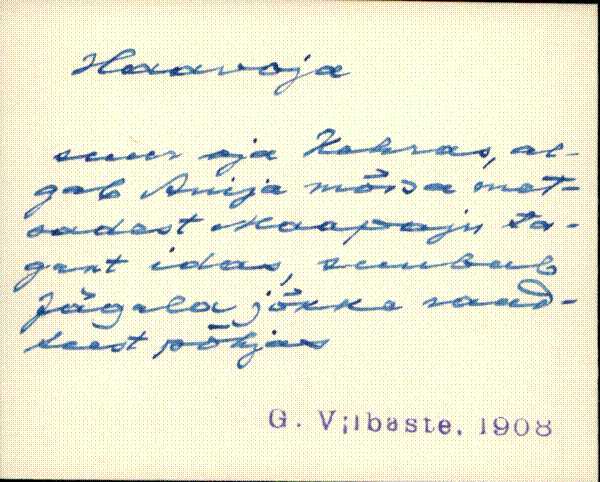 Haavoja
suur oja Kehras, al-
gab Anija mõisa met-
sadest Maapaju ta-
gant idas, suubub
Jägala jõkke raud-
teest põhjas
G. Vilbaste. 1908